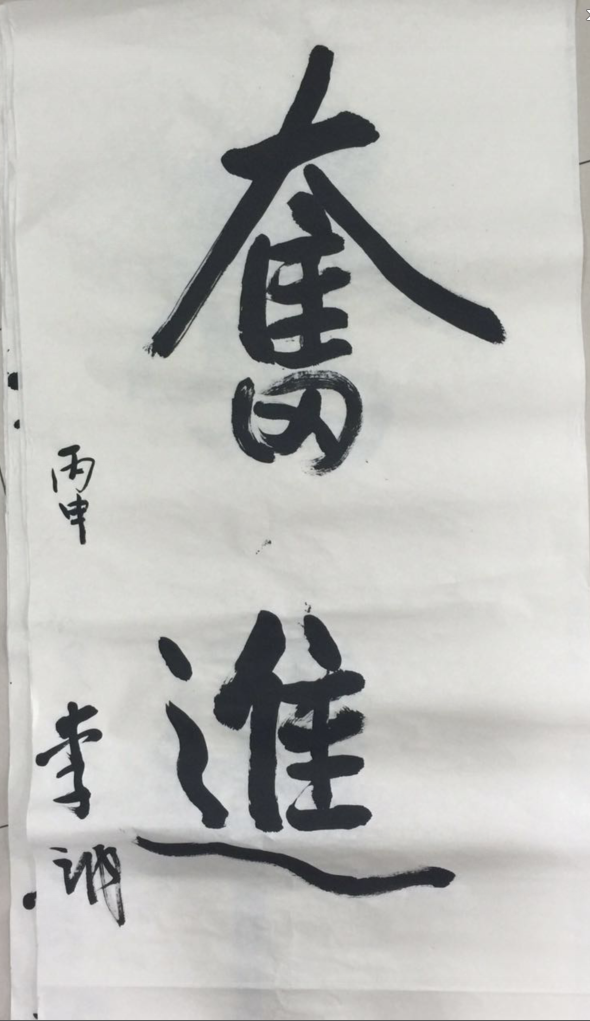 奮進
丙申
李讷